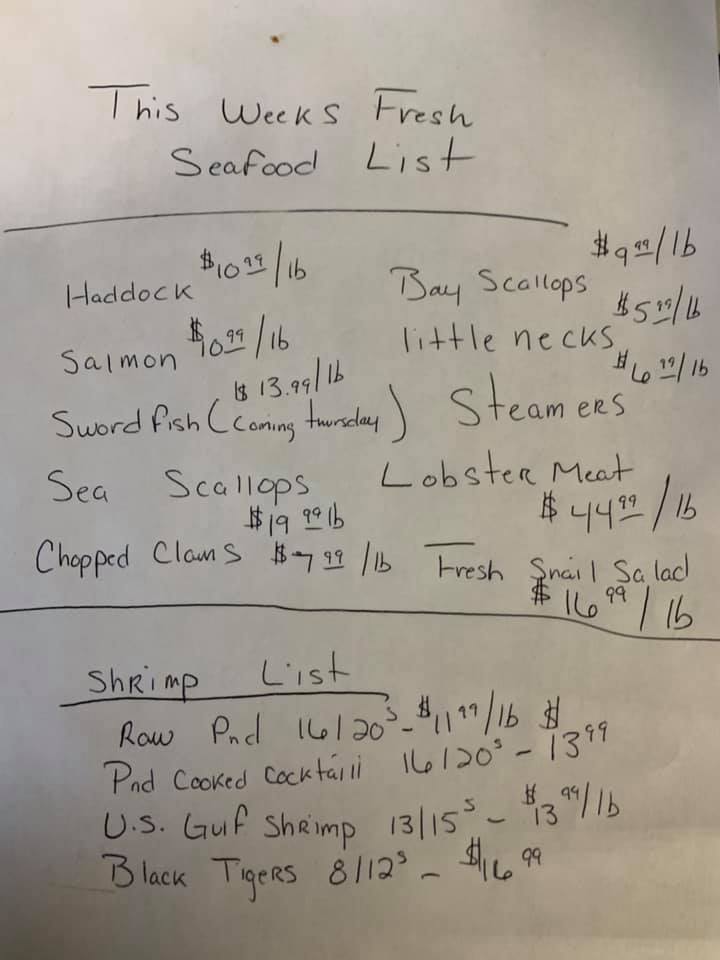 This Weeks Fresh
Seafood List
Haddock $10.99/lb
Bay Scallops $9.99/lb
Salmon $10.99/lb
little necks $5.99/lb
Swordfish (Coming thursday) $13.99/lb
Steamers $6.99/lb
Sea Scallops
$19.99 lb
Lobster Meat
$44.99/lb
Chopped Clams $7.99/lb
Fresh Snail Salad
$16.99/lb
Shrimp List
Raw Pnd 16/20s - $11.99/lb
Pnd Cooked Cocktail 16/20s - $13.99
U.S. Gulf Shrimp 13/15s - $13.99/lb
Black Tigers 8/12s - $16.99